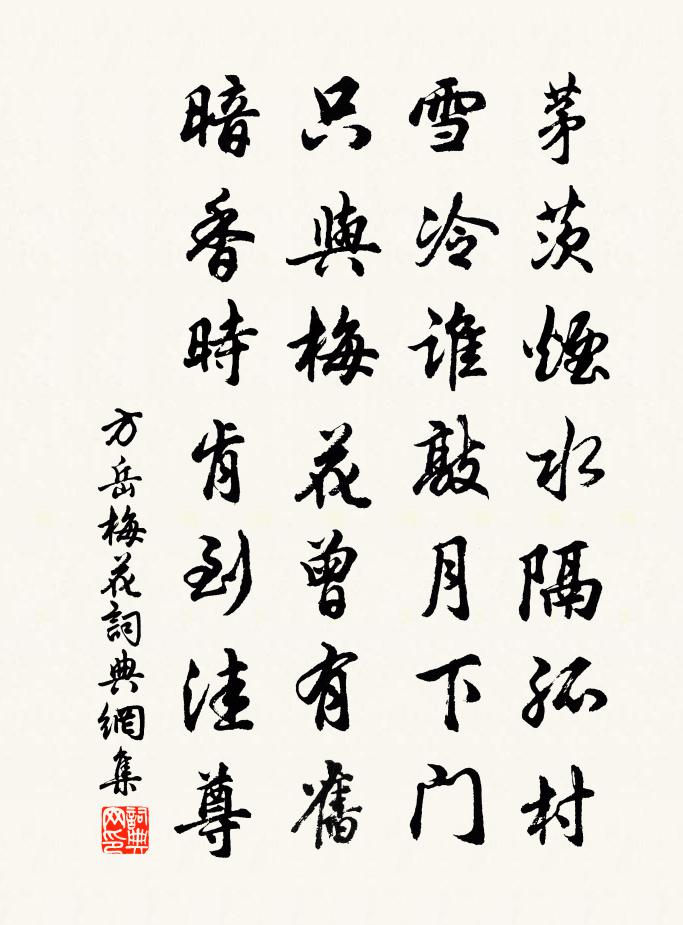 茅茨煙水隔孤村
雪冷誰敲月下門
只與梅花曾有舊
暗香時肯到洼尊
方岳梅花詞典網集
詞典網印